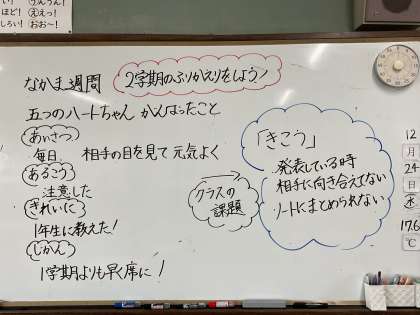 い! うんうん!
ほど! ええっ!
しろい! おお〜!
なかま週間 2学期のふりかえりをしよう!
五つのハートちゃん がんばったこと
あいさつ
毎日 相手の目を見て 元気よく
あるこう
注意した
きれいに
1年生に教えた!
じかん
1学期よりも早く席に!
クラスの
課題
「きこう」
発表している時
相手に向き合えてない
ノートにまとめられない
12
月
24
日
水
17.6
℃